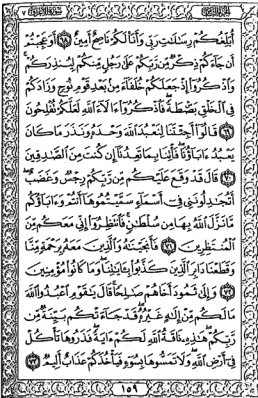 أُبَلِّغُكُمْ رِسَالَاتِ رَبِّي وَأَنَا لَكُمْ نَاصِحٌ أَمِينٌ ۝٦٨ أَوَعَجِبْتُمْ
أَن جَاءَكُمْ ذِكْرٌ مِّن رَّبِّكُمْ عَلَىٰ رَجُلٍ مِّنكُمْ لِيُنذِرَكُمْ
وَاذْكُرُوا إِذْ جَعَلَكُمْ خُلَفَاءَ مِن بَعْدِ قَوْمِ نُوحٍ وَزَادَكُمْ
فِي الْخَلْقِ بَصْطَةً فَاذْكُرُوا آلَاءَ اللَّهِ لَعَلَّكُمْ تُفْلِحُونَ
۝٦٩ قَالُوا أَجِئْتَنَا لِنَعْبُدَ اللَّهَ وَحْدَهُ وَنَذَرَ مَا كَانَ
يَعْبُدُ آبَاؤُنَا فَأْتِنَا بِمَا تَعِدُنَا إِن كُنتَ مِنَ الصَّادِقِينَ
۝٧٠ قَالَ قَدْ وَقَعَ عَلَيْكُم مِّن رَّبِّكُمْ رِجْسٌ وَغَضَبٌ
أَتُجَادِلُونَنِي فِي أَسْمَاءٍ سَمَّيْتُمُوهَا أَنتُمْ وَآبَاؤُكُم
مَّا نَزَّلَ اللَّهُ بِهَا مِن سُلْطَانٍ فَانتَظِرُوا إِنِّي مَعَكُم مِّنَ
الْمُنتَظِرِينَ ۝٧١ فَأَنجَيْنَاهُ وَالَّذِينَ مَعَهُ بِرَحْمَةٍ مِّنَّا
وَقَطَعْنَا دَابِرَ الَّذِينَ كَذَّبُوا بِآيَاتِنَا وَمَا كَانُوا مُؤْمِنِينَ
۝٧٢ وَإِلَىٰ ثَمُودَ أَخَاهُمْ صَالِحًا قَالَ يَا قَوْمِ اعْبُدُوا اللَّهَ
مَا لَكُم مِّنْ إِلَٰهٍ غَيْرُهُ قَدْ جَاءَتْكُم بَيِّنَةٌ مِّن
رَّبِّكُمْ هَٰذِهِ نَاقَةُ اللَّهِ لَكُمْ آيَةً فَذَرُوهَا تَأْكُلْ
فِي أَرْضِ اللَّهِ وَلَا تَمَسُّوهَا بِسُوءٍ فَيَأْخُذَكُمْ عَذَابٌ أَلِيمٌ ۝٧٣
١٥٩